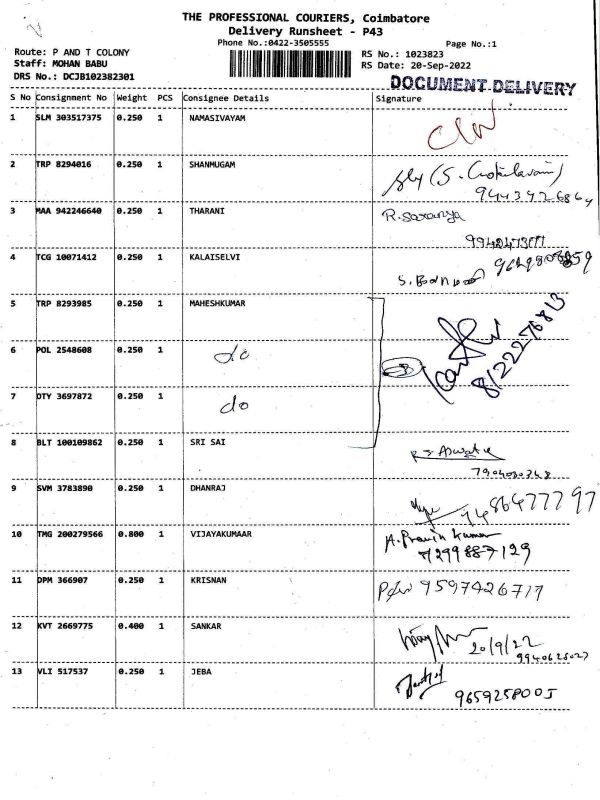 THE PROFESSIONAL COURIERS, Coimbatore
Delivery Runsheet - P43
Phone No.:0422-3505555
Page No.:1
Route: P AND T COLONY
RS No.: 1023823
Staff: MOHAN BABU
RS Date: 20-Sep-2022
DRS No.: DCJB102382301
DOCUMENT DELIVERY
S No Consignment No Weight PCS Consignee Details Signature
1 SLM 303517375 0.250 1 NAMASIVAYAM
2 TRP 8294016 0.250 1 SHANMUGAM
3 MAA 942246640 0.250 1 THARANI R. Saranya
4 TCG 10071412 0.250 1 KALAISELVI
5 TRP 8293985 0.250 1 MAHESHKUMAR
81222276813
6 POL 2548608 0.250 1 do
7 DTY 3697872 0.250 1 do
8 BLT 100109862 0.250 1 SRI SAI
9 SVM 3783890 0.250 1 DHANRAJ
7486477797
10 TMG 200279566 0.800 1 VIJAYAKUMAAR A. Pravin Kumar
7299887129
11 DPM 366907 0.250 1 KRISNAN 9597426717
12 KVT 2669775 0.400 1 SANKAR
20/9/22
13 VLI 517537 0.250 1 JEBA
9659258005